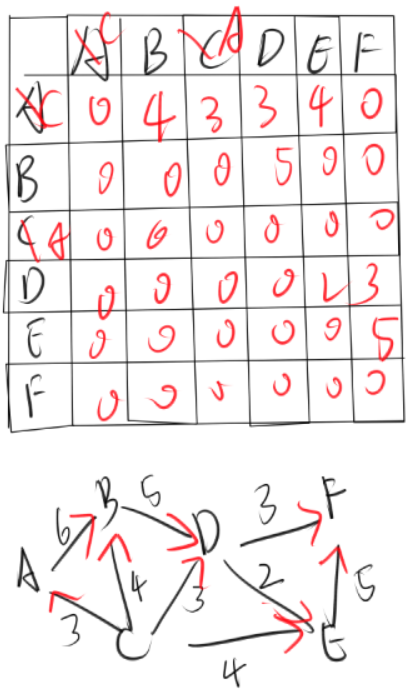 A C B C A D E F
A C 0 4 3 3 4 0
B 0 0 0 5 0 0
C A 0 6 0 0 0 0
D 0 0 0 0 2 3
E 0 0 0 0 0 5
F 0 0 0 0 0 0
B 5 D 3 F
6 4 3 2 5
A 3 C 4 E